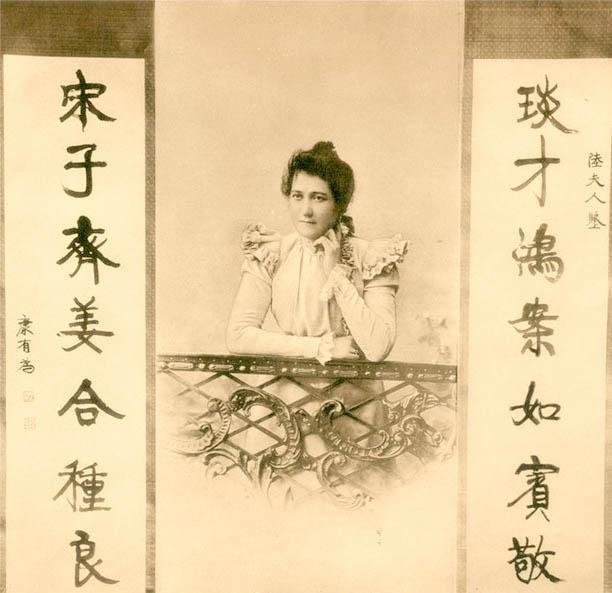 陸夫人
琰才鴻案如賓敬
宋子齊姜合種良
康有為